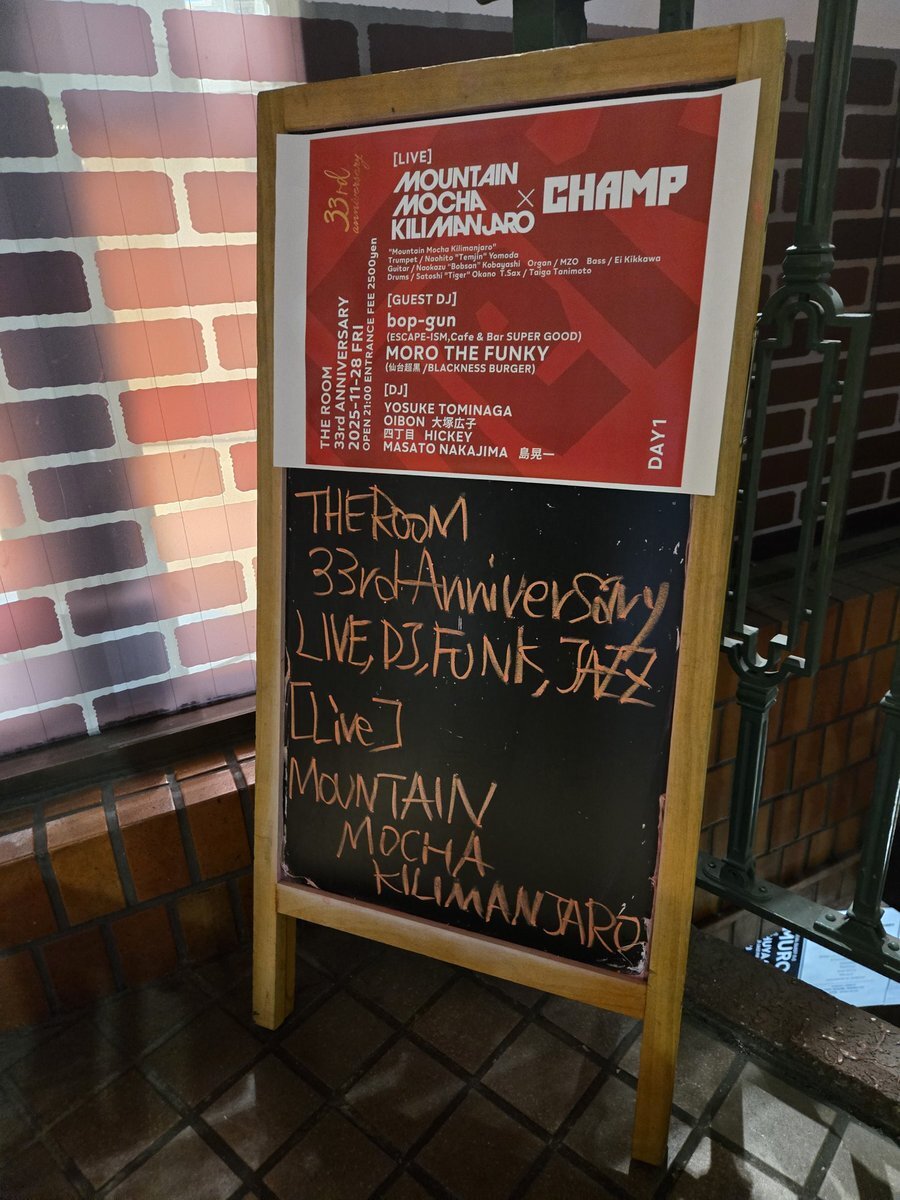 33rd
anniversary
THE ROOM
33rd ANNIVERSARY
2025-11-28 FRI
OPEN 21:00 ENTRANCE FEE 2500yen
[LIVE]
MOUNTAIN
MOCHA
KILIMANJARO
× CHAMP
"Mountain Mocha Kilimanjaro"
Trumpet / Naohito "Temjin" Yomoda
Guitar / Naokazu "Bobsan" Kobayashi Organ / MZO Bass / Ei Kikkawa
Drums / Satoshi "Tiger" Okano T.Sax / Taiga Tanimoto
[GUEST DJ]
bop-gun
(ESCAPE-ISM,Cafe & Bar SUPER GOOD)
MORO THE FUNKY
(仙台超黒 /BLACKNESS BURGER)
[DJ]
YOSUKE TOMINAGA
OIBON 大塚広子
四丁目 HICKEY
MASATO NAKAJIMA 島晃一
DAY1
THE ROOM
33rd Anniversary
LIVE, DJ, FUNK, JAZZ
[Live]
MOUNTAIN
MOCHA
KILIMANJARO
MURO